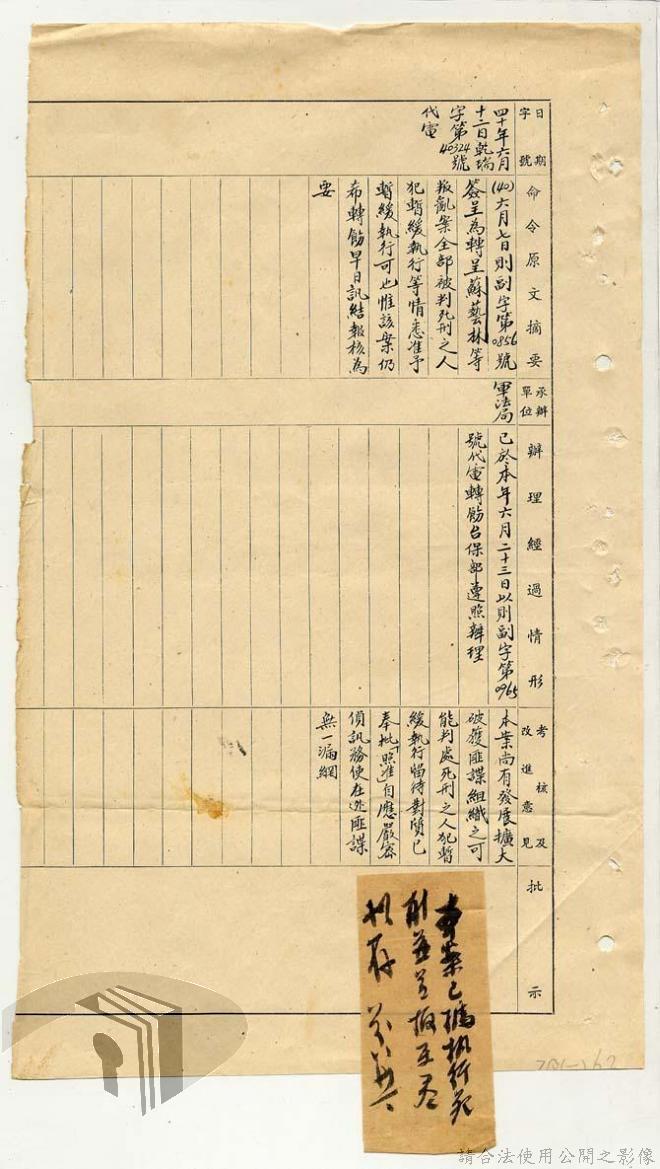 日期
字號
四十年六月
十二日乾瑞
字第40324號
代電
命令原文摘要
(40)六月七日則副字第0856號
簽呈為轉呈蘇藝林等
叛亂案全部被判死刑之人
犯暫緩執行等情悉准予
暫緩執行可也惟該案仍
希轉飭早日訊結報核為
要
承辦
單位
軍法局
辦理經過情形
已於本年六月二十三日以則副字第0965
號代電轉飭台保部遵照辦理
考核及
改進意見
本案尚有發展擴大
破獲匪諜組織之可
能判處死刑之人犯暫
緩執行留待對質已
奉批「照准」自應嚴密
偵訊務使在逃匪諜
無一漏網
批示
本案已據執行死
刑
擬存
請合法使用公開之影像